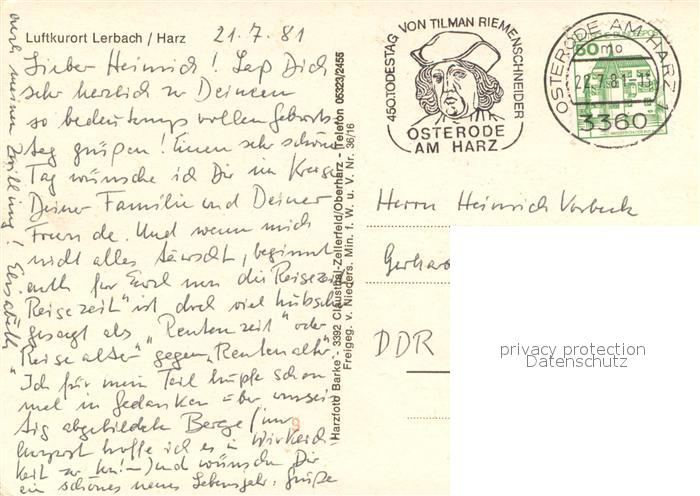 Luftkurort Lerbach / Harz
21.7.81
Lieber Heinrich! Laß Dich
sehr herzlich zu Deinem
so bedeutungsvollen Geburts-
tag grüßen! Einen sehr schönen
Tag wünsche ich Dir im Kreise
Deiner Familie und Deiner
Freunde. Und wenn mich
nicht alles täuscht, beginnt
auch für Euch nun die Reisezeit
"Reisezeit" ist doch viel hübscher
gesagt als "Rentenzeit" oder
"Reisealter" gegen "Rentenalter"
Ich für mein Teil hüpfe schon
mal in Gedanken über umsei-
tig abgebildete Berge (
hoffe ich es in Wirklich-
keit zu tun!-) und wünsche Dir
ein schönes neues Lebensjahr. Grüße
auch meinen Zwilling! Elisabeth
Harzfoto Barke - 3392 Clausthal-Zellerfeld/Oberharz - Telefon 05323/2455
Freigeg. v. Nieders. Min. f. W. u. V. Nr. 36/16
450.TODESTAG VON TILMAN RIEMENSCHNEIDER
OSTERODE
AM HARZ
OSTERODE AM HARZ 1
22.7.81-15
3360
60
Herrn Heinrich Vorbeck
Gerhar
DDR
privacy protection
Datenschutz